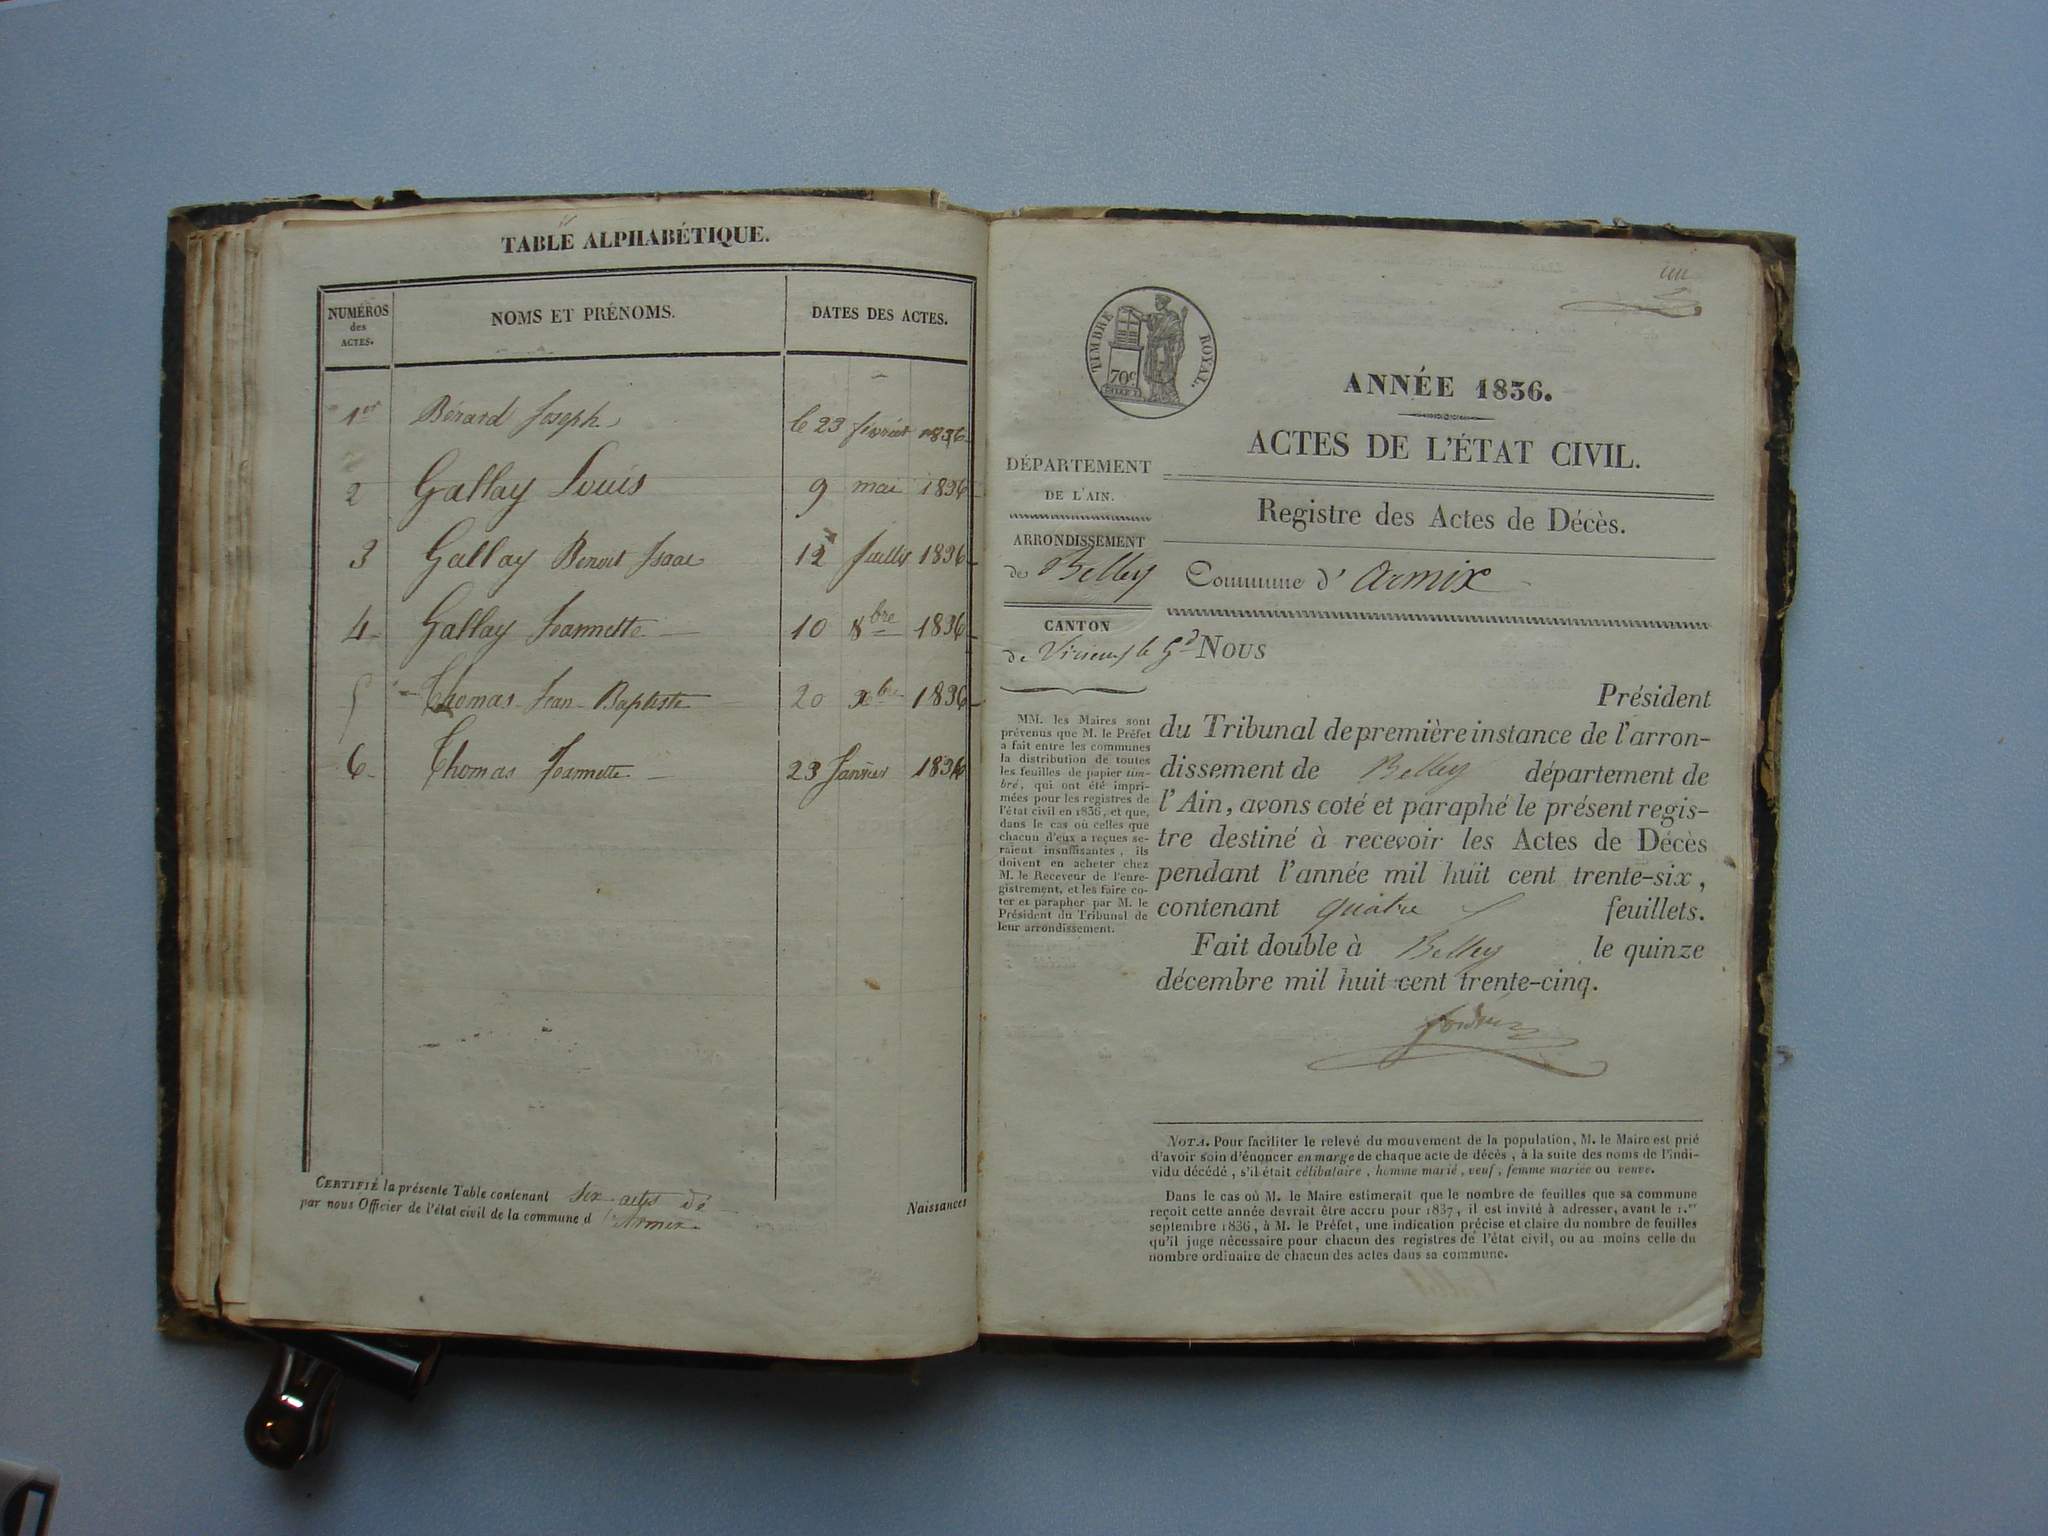 TABLE ALPHABÉTIQUE.
NUMÉROS
des
ACTES.
NOMS ET PRÉNOMS.
DATES DES ACTES.
1er Bérard Joseph le 23 février 1836
2 Gallay Louis 9 mai 1836
3 Gallay Benoit Isaac 12 Juillet 1836
4 Gallay Jeannette 10 8bre 1836
5 Thomas Jean Baptiste 20 Xbre 1836
6 Thomas Jeannette 23 Janvier 1836
CERTIFIÉ la présente Table contenant six actes de Naissances
par nous Officier de l'état civil de la commune d'Armix
TIMBRE ROYAL.
70c
ANNÉE 1836.
ACTES DE L'ÉTAT CIVIL.
Registre des Actes de Décès.
Commune d'Armix
DÉPARTEMENT
DE L'AIN.
ARRONDISSEMENT
de Belley
CANTON
de Virieu le Gd
MM. les Maires sont
prévenus que M. le Préfet
a fait entre les communes
la distribution de toutes
les feuilles de papier tim-
bré, qui ont été impri-
mées pour les registres de
l'état civil en 1836, et que,
dans le cas où celles que
chacun d'eux a reçues se-
raient insuffisantes, ils
doivent en acheter chez
M. le Receveur de l'enre-
gistrement, et les faire co-
ter et parapher par M. le
Président du Tribunal de
leur arrondissement.
NOUS
Président
du Tribunal de première instance de l'arron-
dissement de Belley département de
l'Ain, avons coté et paraphé le présent regis-
tre destiné à recevoir les Actes de Décès
pendant l'année mil huit cent trente-six,
contenant quatre feuillets.
Fait double à Belley le quinze
décembre mil huit cent trente-cinq.
NOTA. Pour faciliter le relevé du mouvement de la population, M. le Maire est prié
d'avoir soin d'énoncer en marge de chaque acte de décès, à la suite des noms de l'indi-
vidu décédé, s'il était célibataire, homme marié, veuf, femme mariée ou veuve.
Dans le cas où M. le Maire estimerait que le nombre de feuilles que sa commune
reçoit cette année devrait être accru pour 1837, il est invité à adresser, avant le 1.er
septembre 1836, à M. le Préfet, une indication précise et claire du nombre de feuilles
qu'il juge nécessaire pour chacun des registres de l'état civil, ou au moins celle du
nombre ordinaire de chacun des actes dans sa commune.